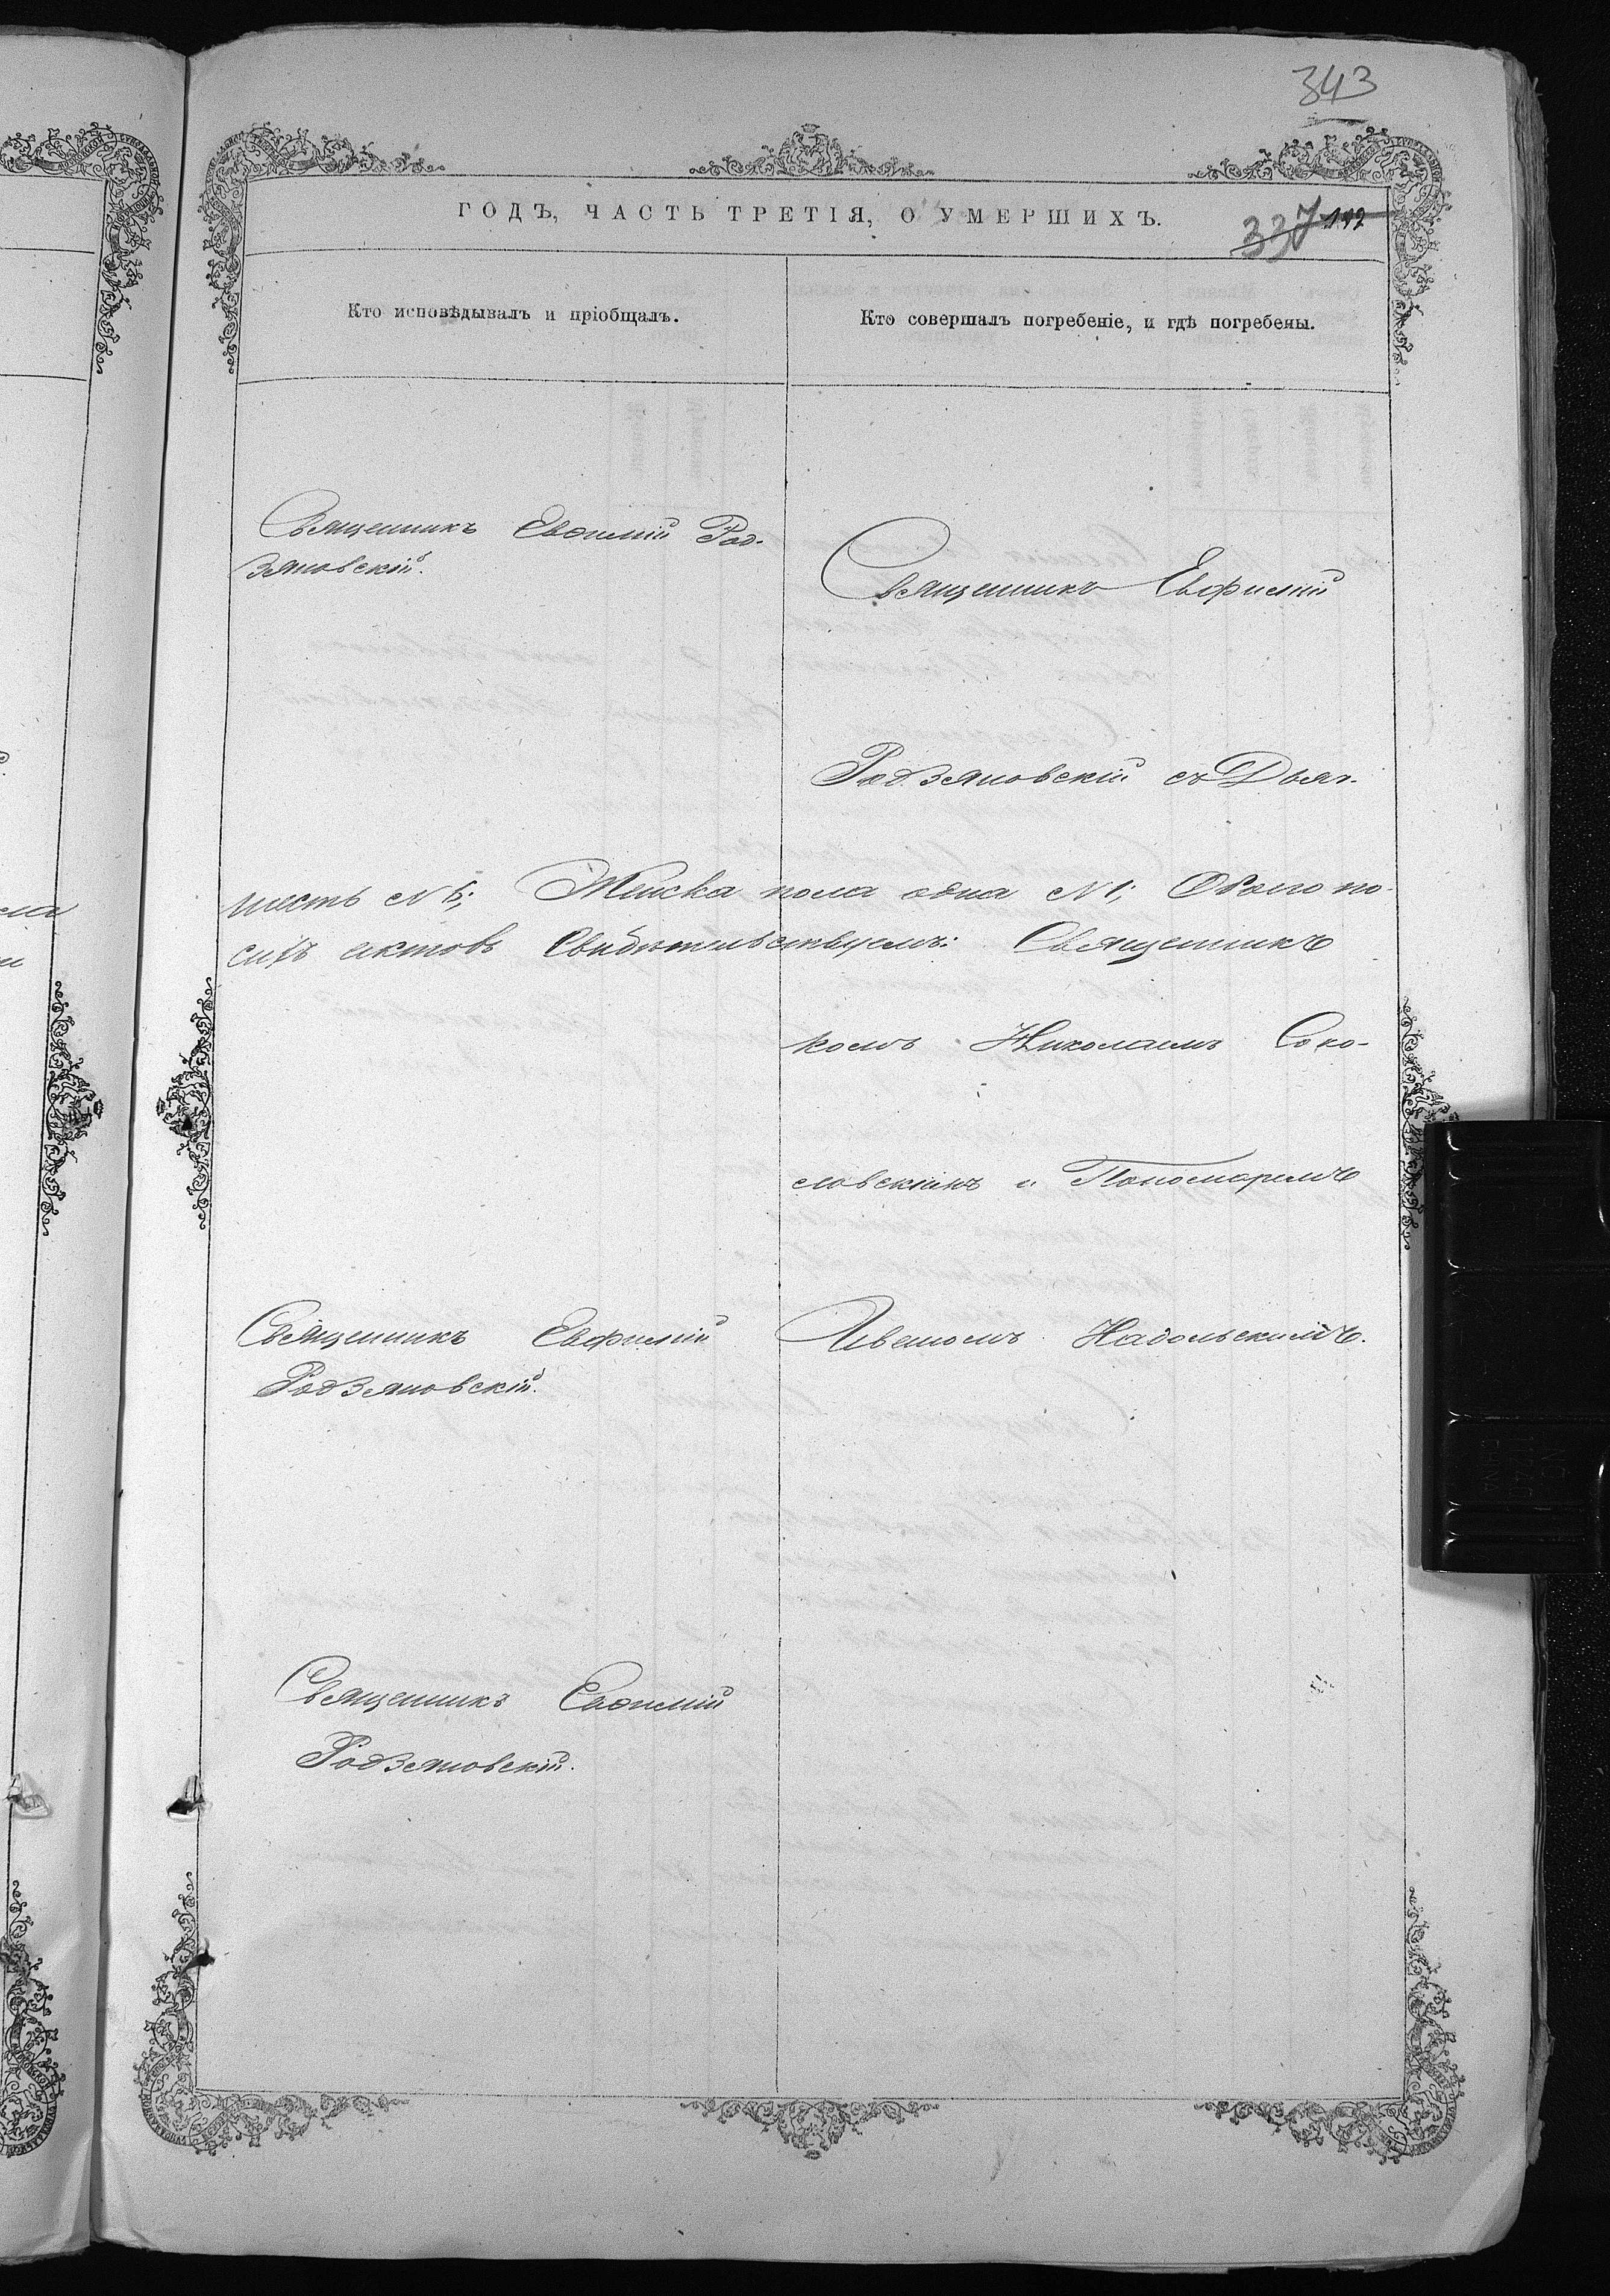 343
ГОДЪ, ЧАСТЬ ТРЕТІЯ, О УМЕРШИХЪ.
337 192
Кто исповѣдывалъ и пріобщалъ.
Кто совершалъ погребеніе, и гдѣ погребены.
Священникъ Евѳимій Род-
зяновскій.
Священникъ Евфимій
Родзяновскій съ Дьяч-
шесть № 6; Женска пола одна № 1; Обаго по-
сихъ актовъ Свидѣтельствуемъ: Священникъ
комъ Николаемъ Соко-
ловскимъ и Пономаремъ
Священникъ Евфимій
Родзяновскій.
Иваномъ Надольскимъ.
Священникъ Евѳимій
Родзяновскій.